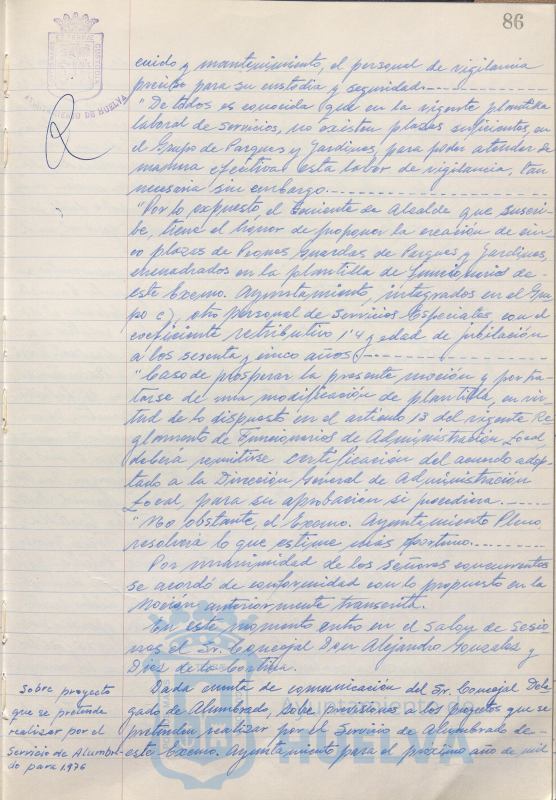 86
AYUNTAMIENTO DE HUELVA
cuido y mantenimiento, el personal de vigilancia
preciso para su custodia y seguridad.
"De todos es conocida que en la vigente plantilla
laboral de servicios, no existen plazas suficientes, en
el Grupo de Parques y Jardines, para poder atender de
manera efectiva esta labor de vigilancia, tan
necesaria sin embargo.
"Por lo expuesto el Teniente de Alcalde que suscri-
be, tiene el honor de proponer la creación de cin-
co plazas de Peones Guardas de Parques y Jardines,
encuadrados en la plantilla de funcionarios de
este Excmo. Ayuntamiento, integrados en el Gru-
po c), otro personal de Servicios Especiales, con el
coeficiente retributivo 1'4 y edad de jubilación
a los sesenta y cinco años.
"Caso de prosperar la presente moción y por tra-
tarse de una modificación de plantilla, en vir-
tud de lo dispuesto en el artículo 13 del vigente Re-
glamento de Funcionarios de Administración Local
deberá remitirse certificación del acuerdo adop-
tado a la Dirección General de Administración
Local, para su aprobación si procediera.
"No obstante, el Excmo. Ayuntamiento Pleno,
resolverá lo que estime más oportuno.
Por unanimidad de los señores concurrentes
se acordó de conformidad con lo propuesto en la
Moción anteriormente transcrita.
En este momento entro en el Salon de Sesio-
nes el Sr. Concejal Don Alejandro Gonzalez y
Diez de la Cortina.
Sobre proyecto
que se pretende
realizar por el
Servicio de Alumbra-
do para 1.976
Dada cuenta de comunicación del Sr. Concejal Dele-
gado de Alumbrado, sobre previsiones a los proyectos que se
pretenden realizar por el Servicio de Alumbrado de
este Excmo. Ayuntamiento para el próximo año de mil
HUELVA